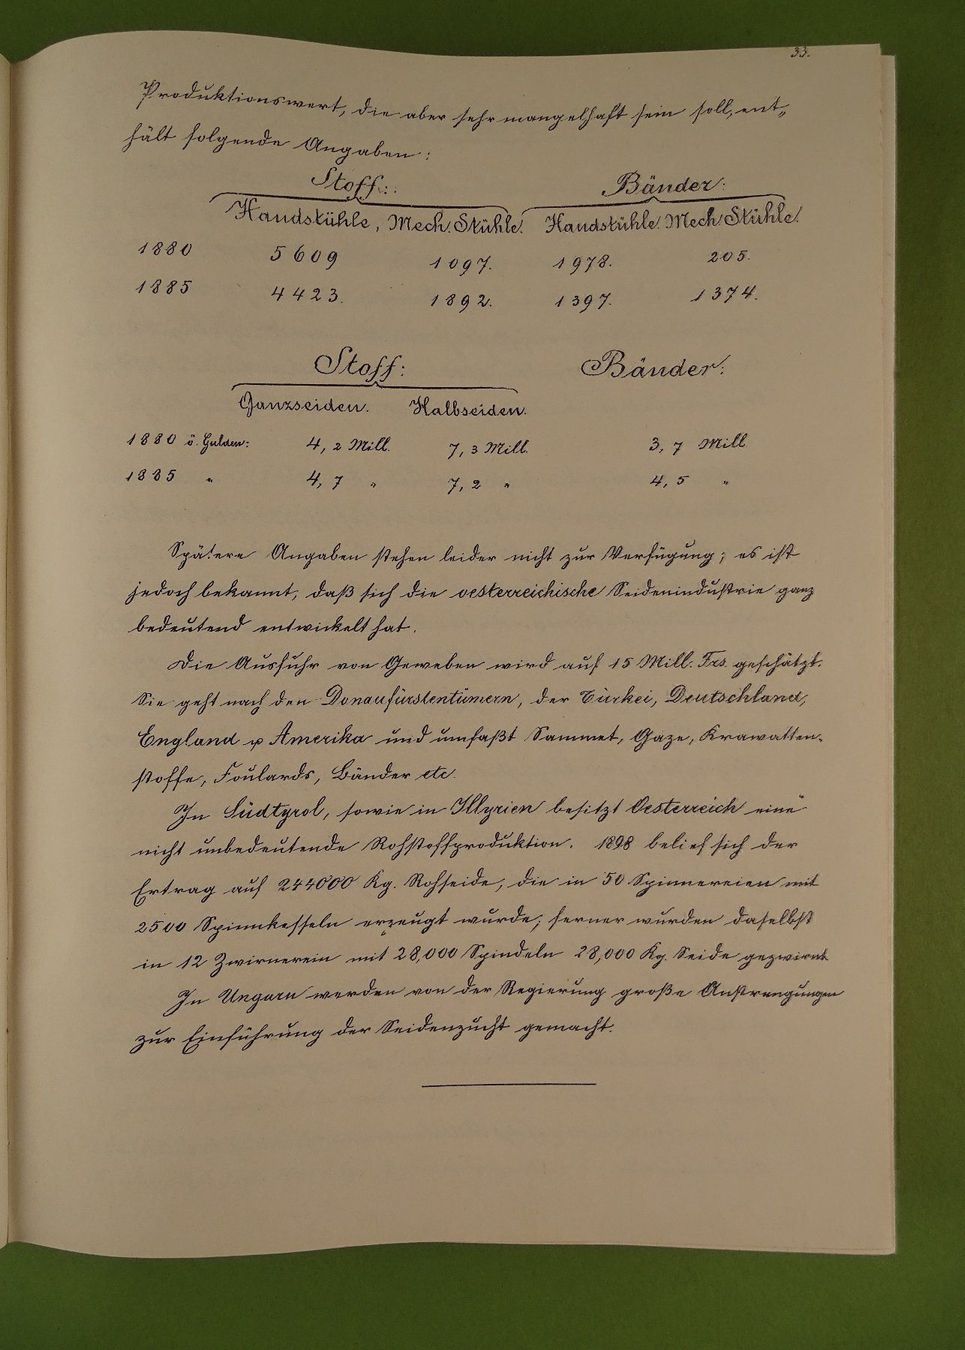 33.
Produktionswert, die aber sehr mangelhaft sein soll, ent„
hält folgende Angaben:
Stoff: Bänder:
Handstühle, Mech. Stühle. Handstühle. Mech. Stühle.
1880 5609 1097. 1978. 205.
1885 4423. 1892. 1397. 1374.
Stoff: Bänder:
Ganzseiden. Halbseiden.
1880 ö. Gulden: 4,2 Mill. 7,3 Mill. 3,7 Mill
1885 " 4,7 " 7,2 " 4,5 "
Spätere Angaben stehen leider nicht zur Verfügung; es ist
jedoch bekannt, daß sich die oesterreichische Seidenindustrie ganz
bedeutend entwickelt hat.
Die Ausfuhr von Geweben wird auf 15 Mill. Frs. geschätzt.
Sie geht nach den Donaufürstentümern, der Türkei, Deutschland,
England & Amerika und umfaßt Sammet, Gaze, Krawatten-
stoffe, Foulards, Bänder etc.
In Südtyrol, sowie in Illyrien besitzt Oesterreich eine
nicht unbedeutende Rohstoffproduktion. 1898 belief sich der
Ertrag auf 244000 Kg. Rohseide, die in 50 Spinnereien mit
2500 Spinnkesseln erzeugt wurde; ferner wurden daselbst
in 12 Zwirnerein mit 28,000 Spindeln 28,000 Kg. Seide gezwirnt
In Ungarn werden von der Regierung große Anstrengungen
zur Einführung der Seidenzucht gemacht.